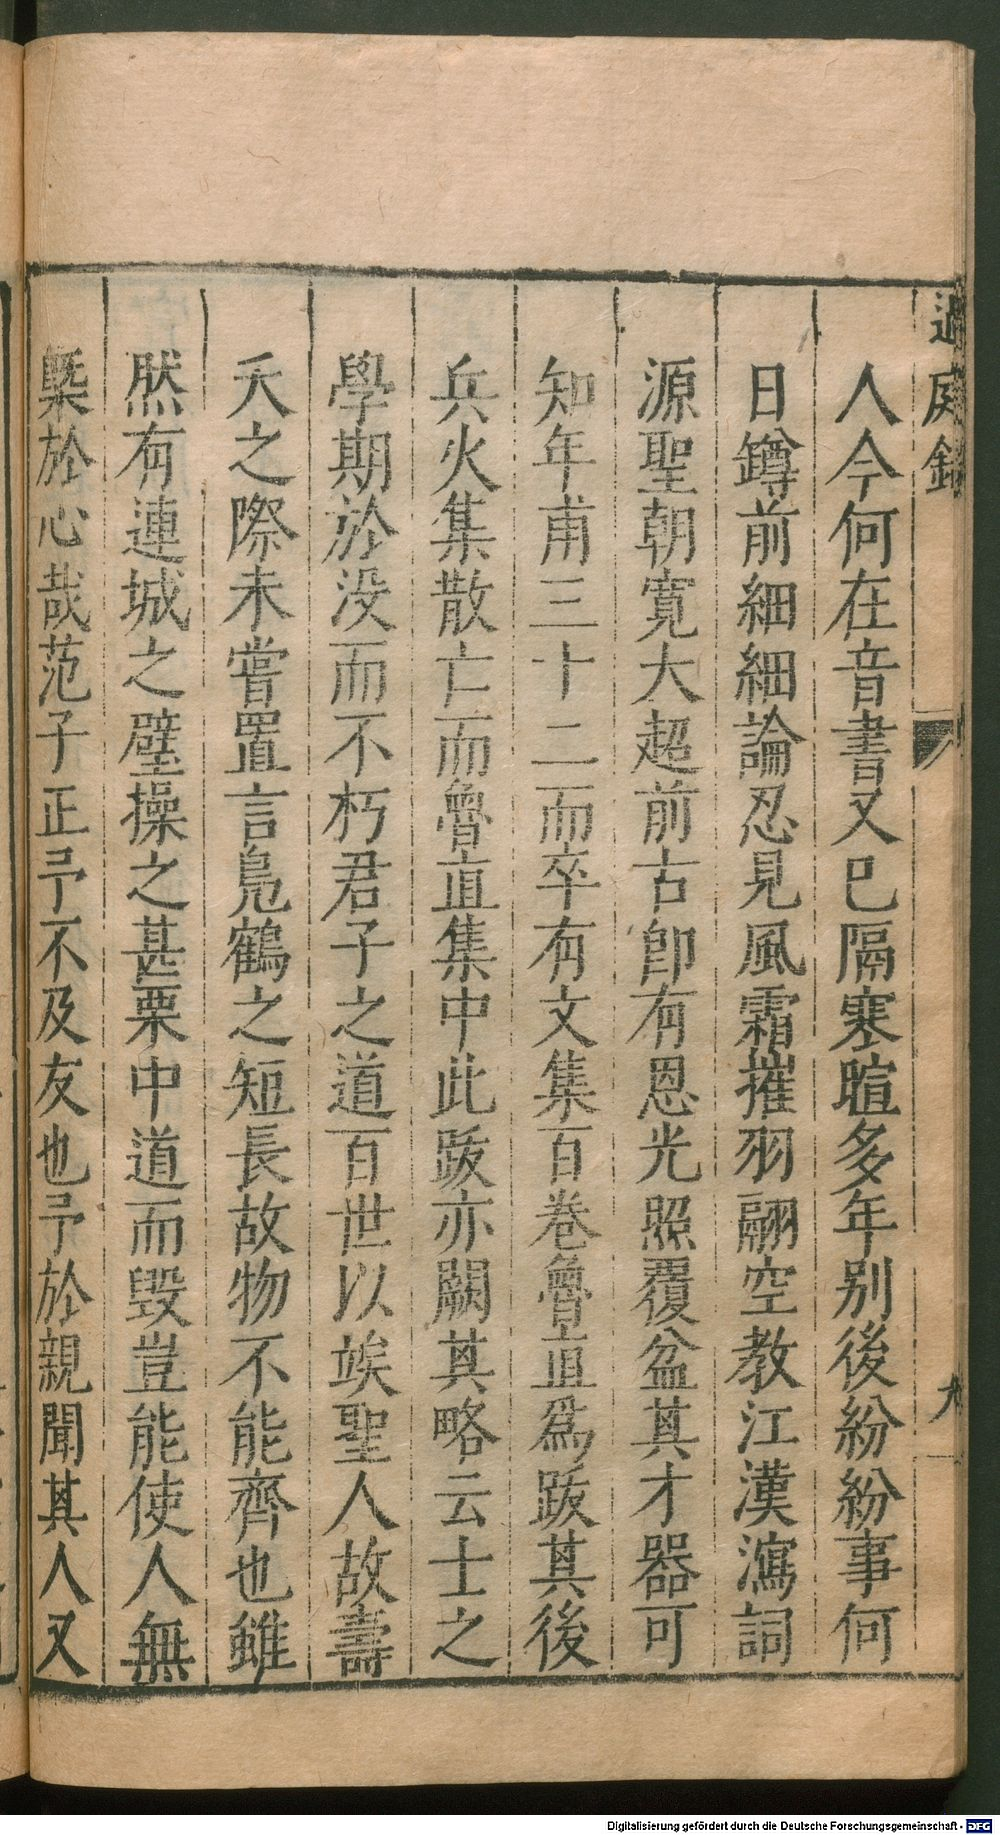 過庭錄
九
人今何在音書又已隔寒暄多年别後紛紛事何
日鐏前細細論忍見風霜摧羽翮空教江漢瀉詞
源聖朝寛大超前古卽有恩光照覆盆其才器可
知年甫三十二而卒有文集百巻魯直爲跋其後
兵火集散亡而魯直集中此跋亦闕其略云士之
學期於没而不朽君子之道百世以竢聖人故壽
夭之際未嘗置言鳬鶴之短長故物不能齊也雖
然有連城之璧操之甚栗中道而毁豈能使人無
槩於心哉范子正予不及友也予於親聞其人又
Digitalisierung gefördert durch die Deutsche Forschungsgemeinschaft - DFG